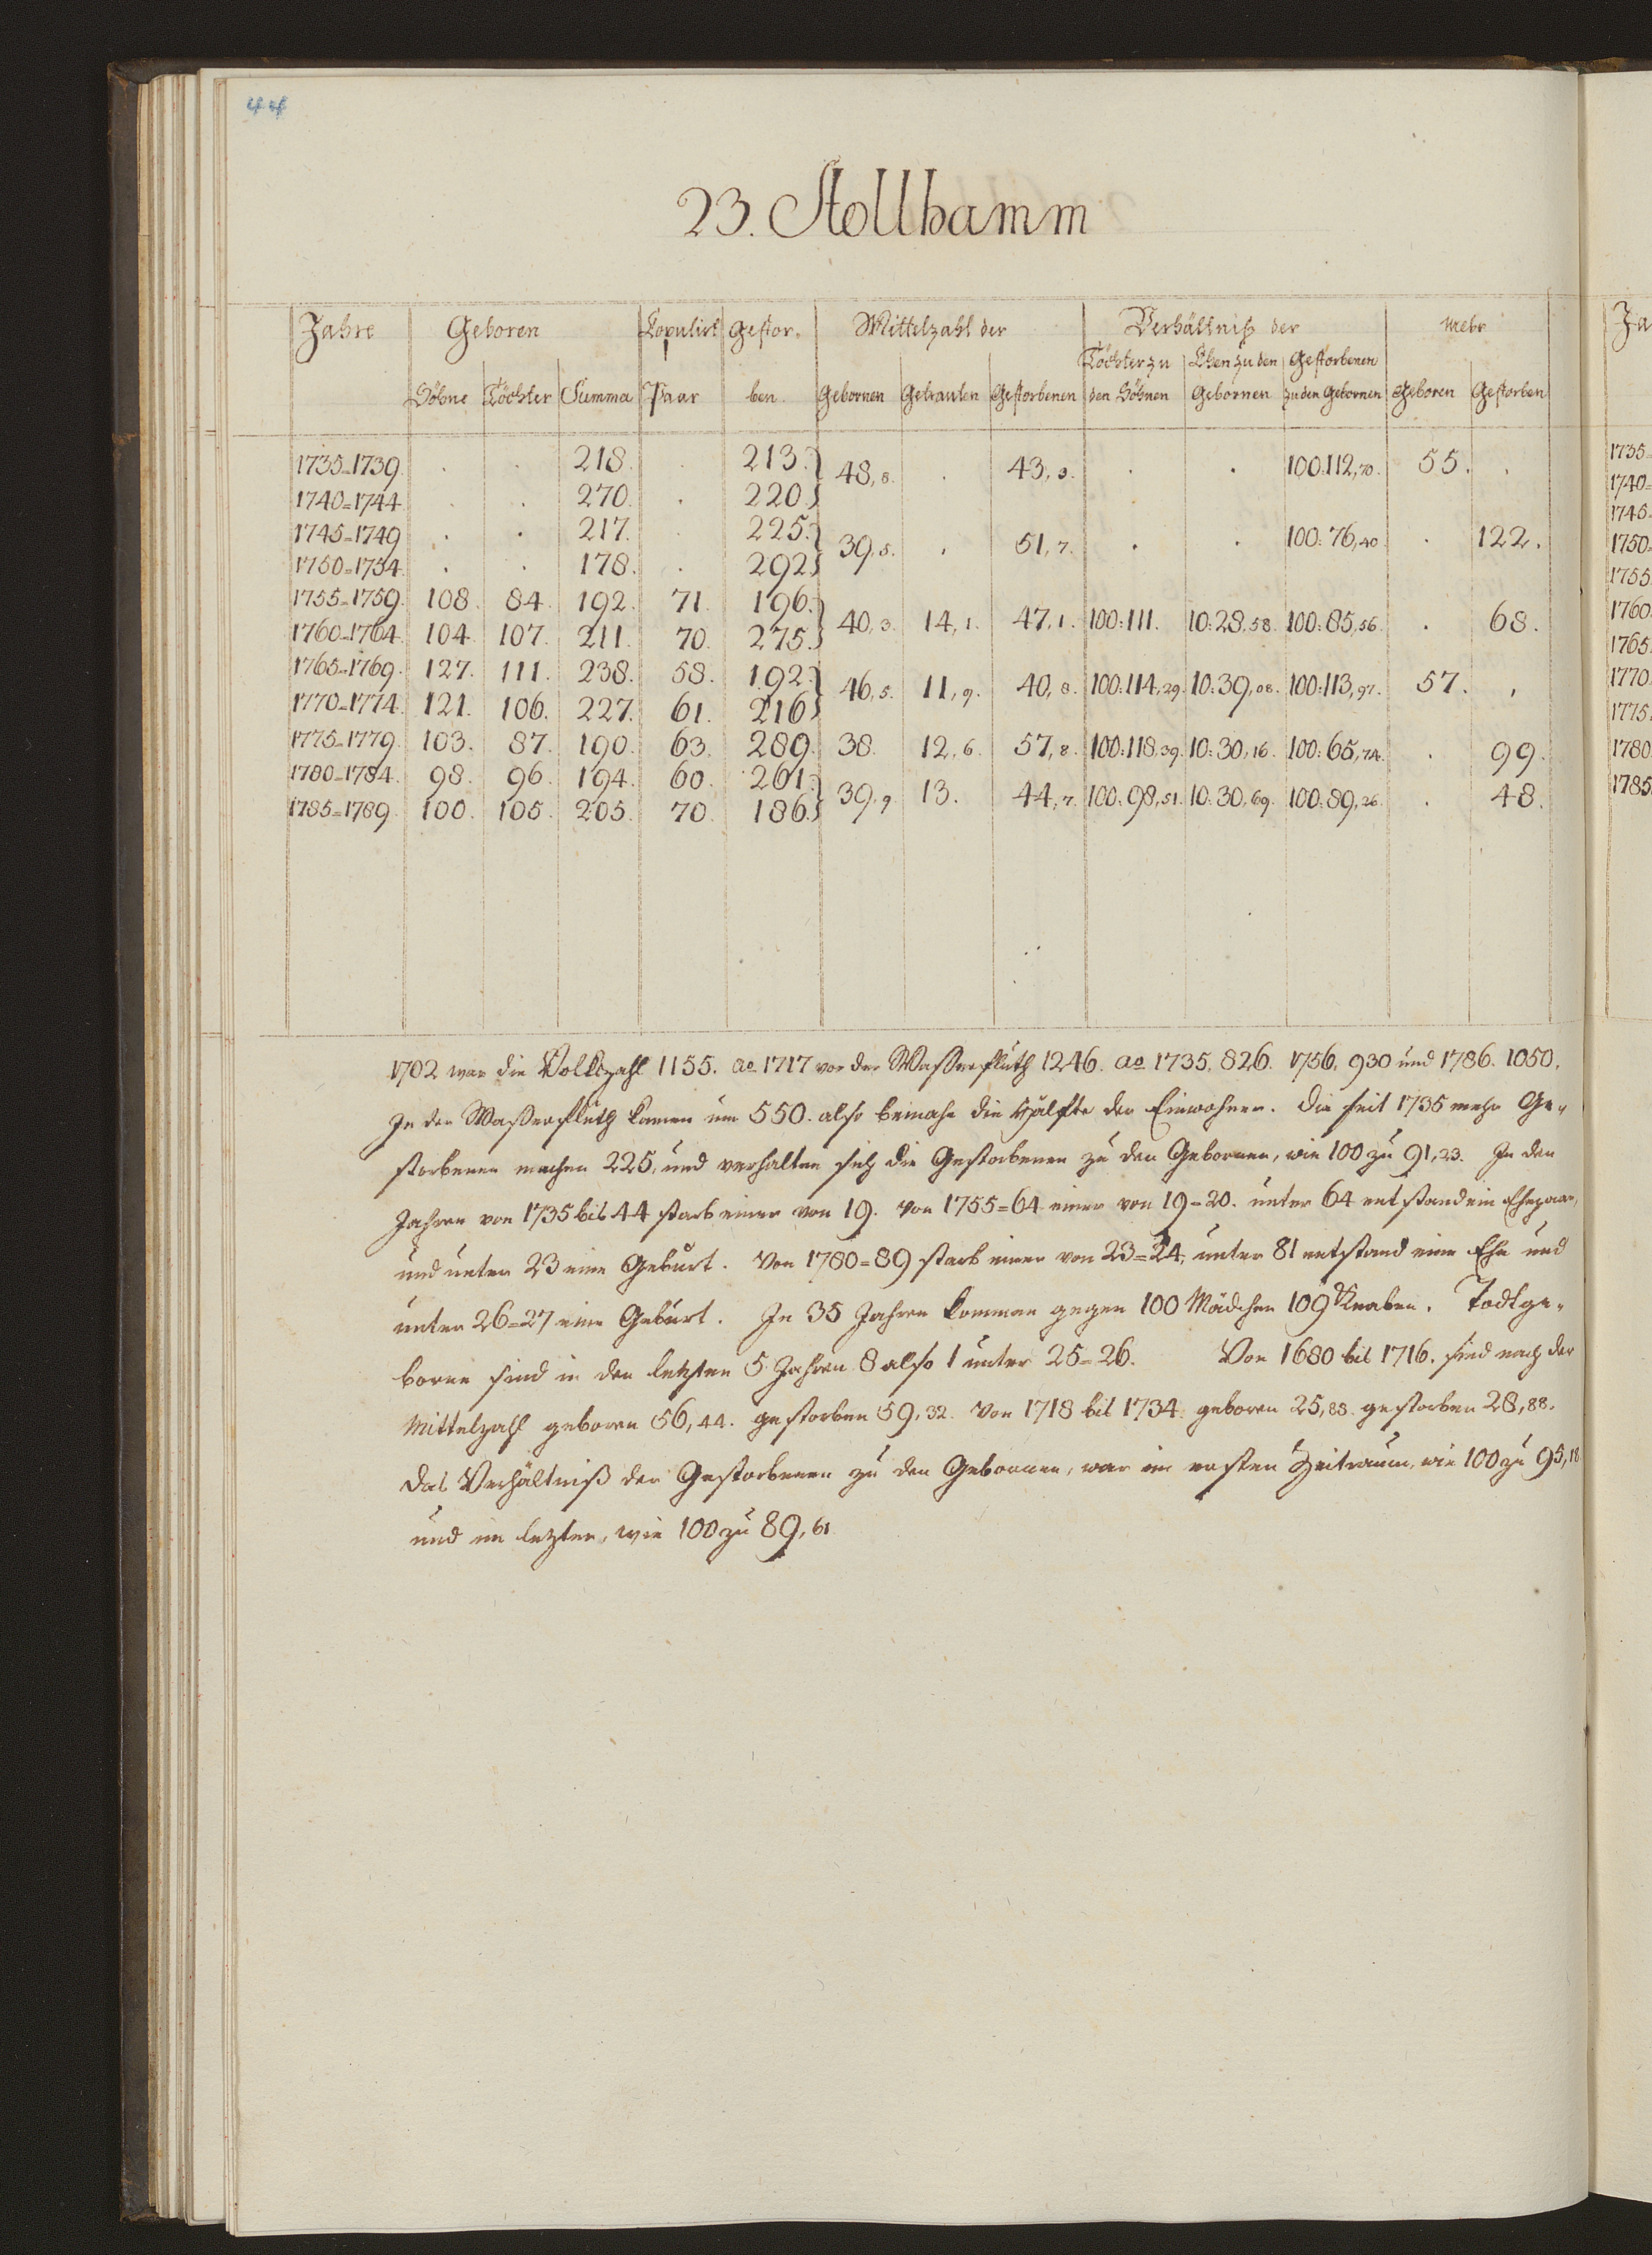 44
23. Stollhamm
Jahre Geboren Kopulirt Gestor- Mittelzahl der Verhältniß der mehr
Töchter zu Ehen zu den Gestorbenen
Söhne Töchter Summa Paar ben. Gebornen Getrauten Gestorbenen den Söhnen Gebornen zu den Gebornen Geboren Gestorben
1735=1739. . . 218. . 213.} 48,8. . 43,3. . . 100:112,70. 55. .
1740=1744. . . 270. . 220.}
1745=1749 . . 217. . 225.} 39,5. . 51,7. . . 100:76,40. . 122.
1750=1754. . . 178. . 292.}
1755=1759. 108. 84. 192. 71. 196.} 40,3. 14,1. 47,1. 100:111. 10:28,58. 100:85,56. . 68.
1760=1764. 104. 107. 211. 70. 275.}
1765=1769. 127. 111. 238. 58. 192.} 46,5. 11,9. 40,8. 100:114,29. 10:39,08. 100:113,97. 57. .
1770=1774. 121. 106. 227. 61. 216}
1775=1779. 103. 87. 190. 63. 289. 38. 12,6. 57,8. 100:118,39. 10:30,16. 100:65,74. . 99.
1780=1784. 98. 96. 194. 60. 261.} 39,9 13. 44,7. 100:98,51. 10:30,69. 100:89,26. . 48.
1785=1789. 100. 105. 205. 70. 186.}
1702 war die Volkszahl 1155. ao 1717 vor der Waßerfluth 1246. ao 1735, 826. 1756, 930 und 1786. 1050.
In der Waßerfluth kamen um 550. also beinahe die Hälfte der Einwohner. Die seit 1735 mehr Ge-
storbenen machen 225, und verhalten sich die Gestorbenen zu den Gebornen, wie 100 zu 91,23. In den
Jahren von 1735 bis 44 starb einer von 19. von 1755=64 einer von 19=20. unter 64 entstand ein Ehepaar,
und unter 23 eine Geburt. Von 1780=89 starb einer von 23=24, unter 81 entstand eine Ehe und
unter 26=27 eine Geburt. In 35 Jahren kommen gegen 100 Mädchen 109 Knaben. Todtge-
borne sind in den letzten 5 Jahren 8 also 1 unter 25=26. Von 1680 bis 1716. sind nach der
Mittelzahl geboren 56,44. gestorben 59,32. Von 1718 bis 1734. geboren 25,88. gestorben 28,88.
Das Verhältniß der Gestorbenen zu den Gebornen, war im ersten Zeitraum, wie 100 zu 95,18
und im lezten, wie 100 zu 89,61
Ja
1735=
1740=
1745=
1750=
1755.
1760.
1765.
1770.
1775.
1780
1785